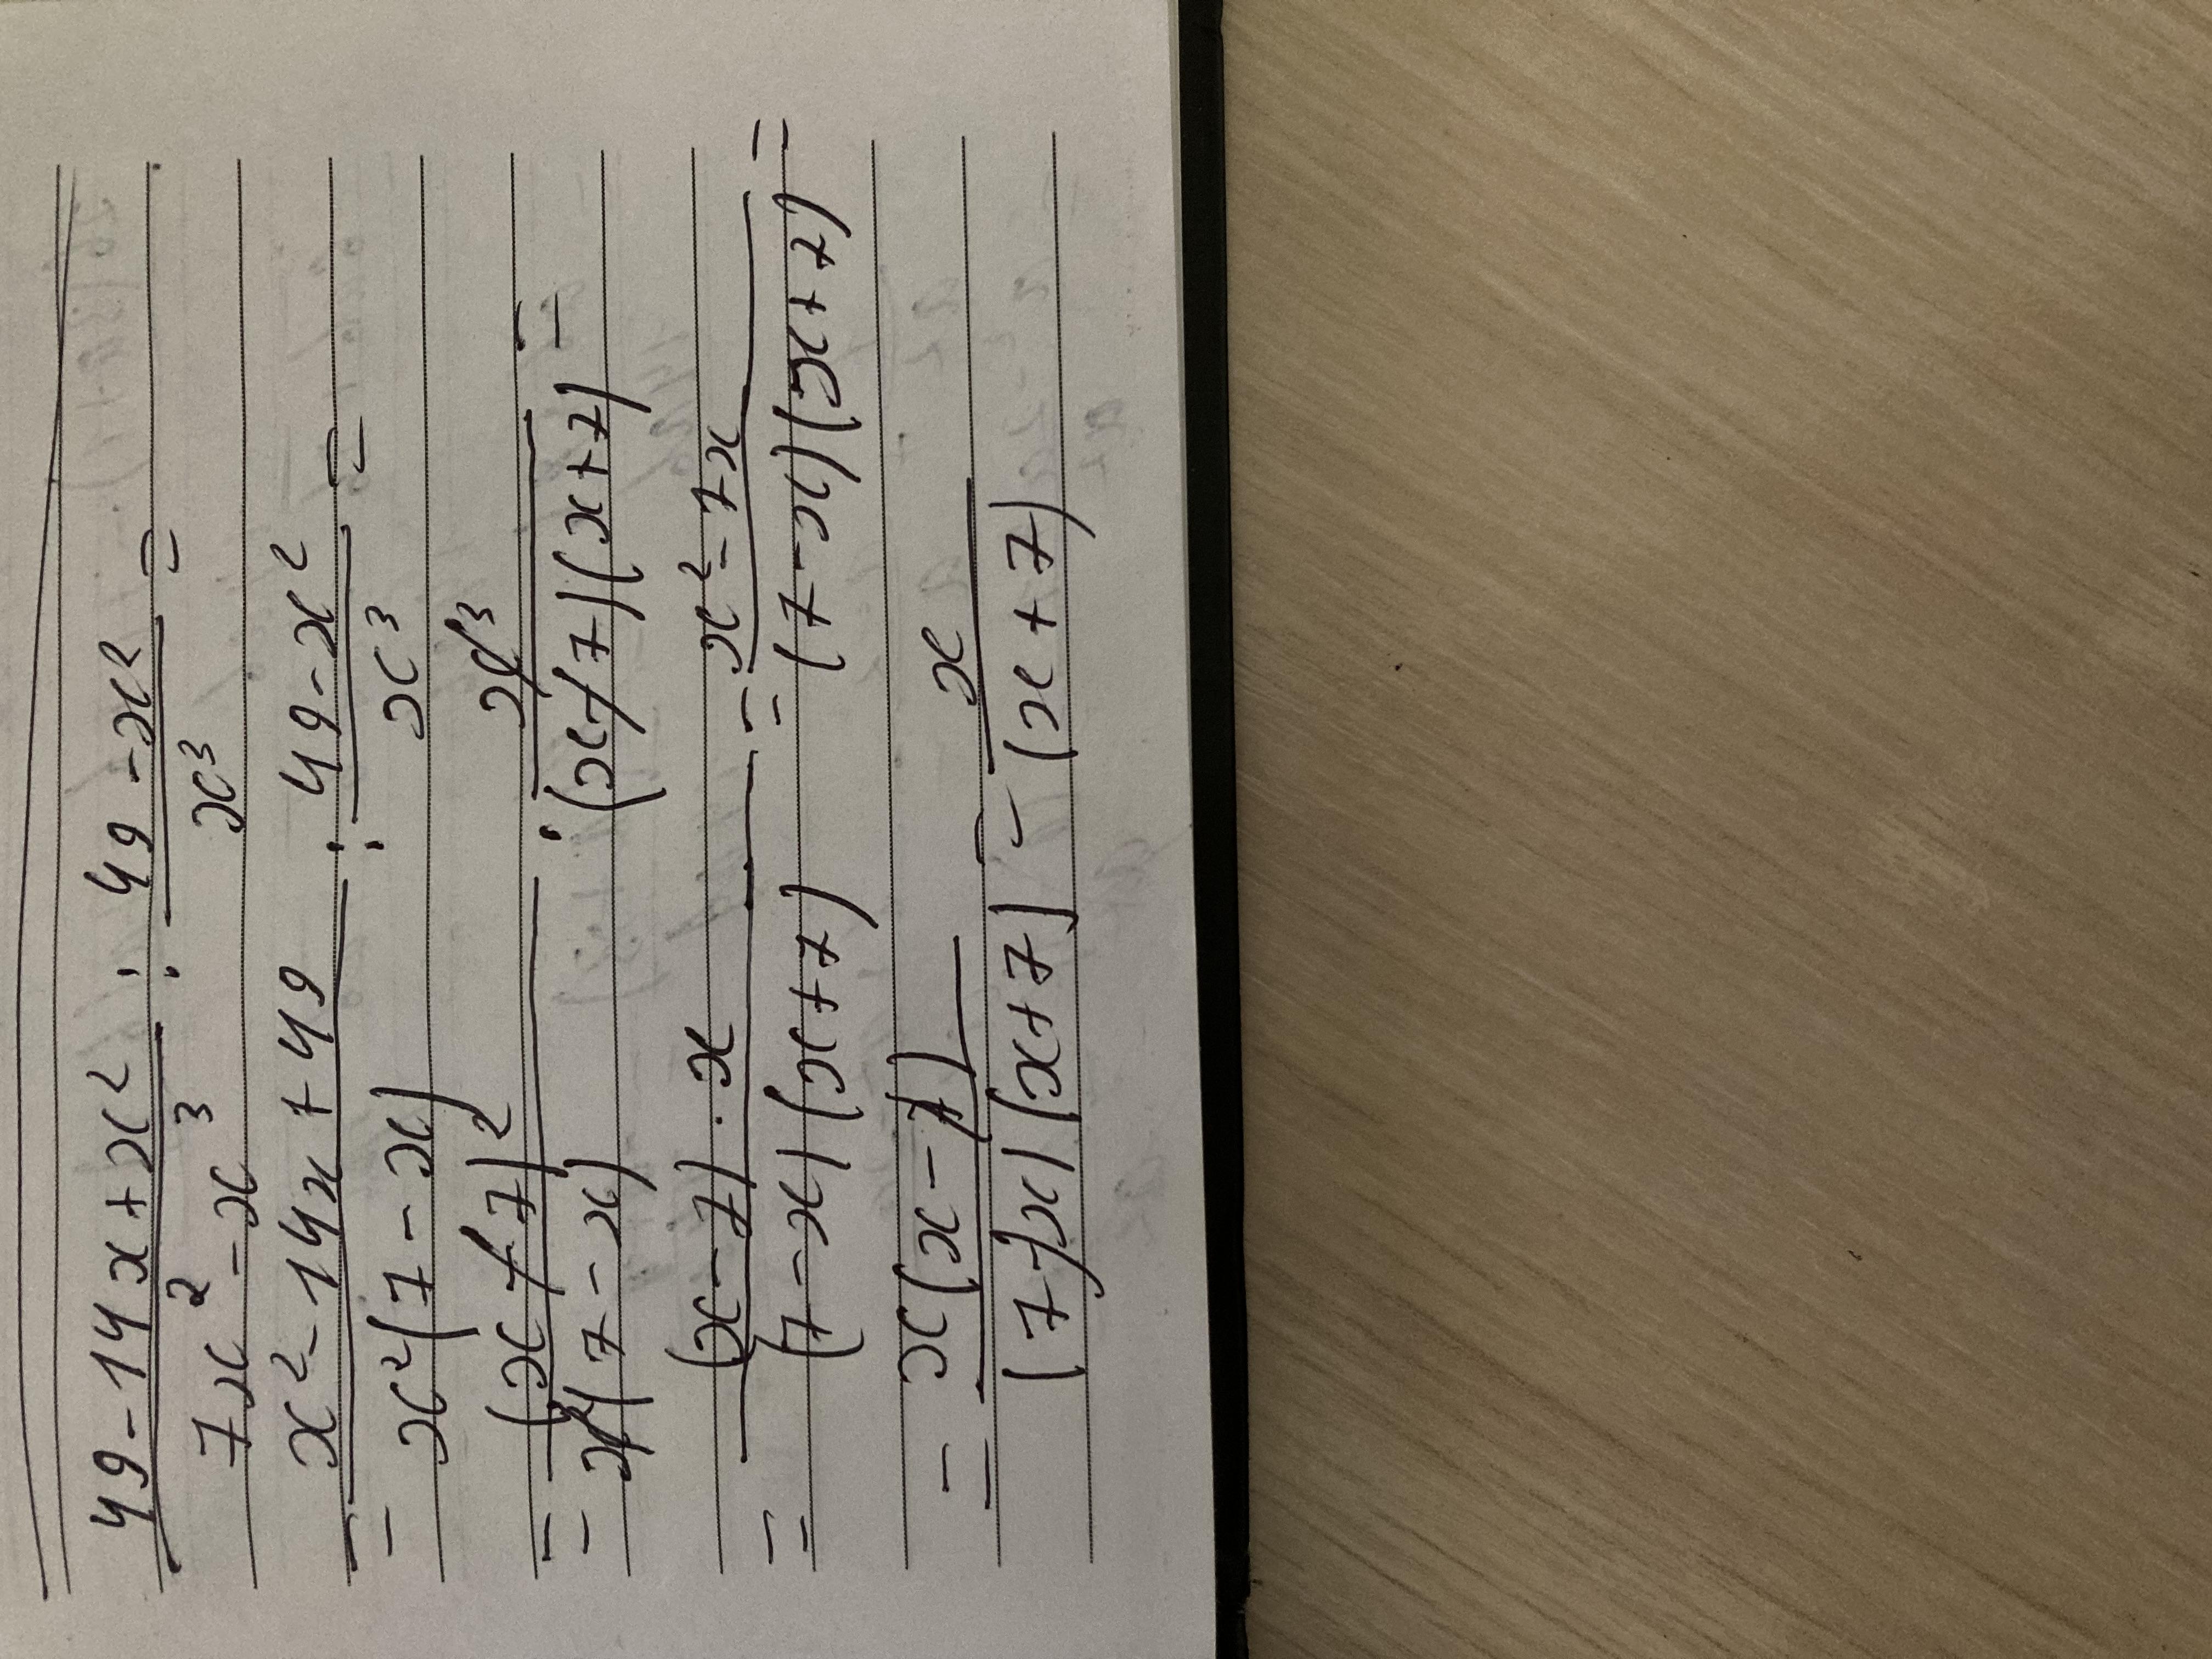 49-14x+x² / 7x²-x³ : 49-x² / x³ =
= x²-14x+49 / x²(7-x) : 49-x² / x³ =
= (x-7)² / x²(7-x) · x³ / (x-7)(x+7) =
= (x-7)·x / (7-x)(x+7) = x²-7x / (7-x)(x+7) =
= x(x-7) / (7-x)(x+7) = x / (x+7)